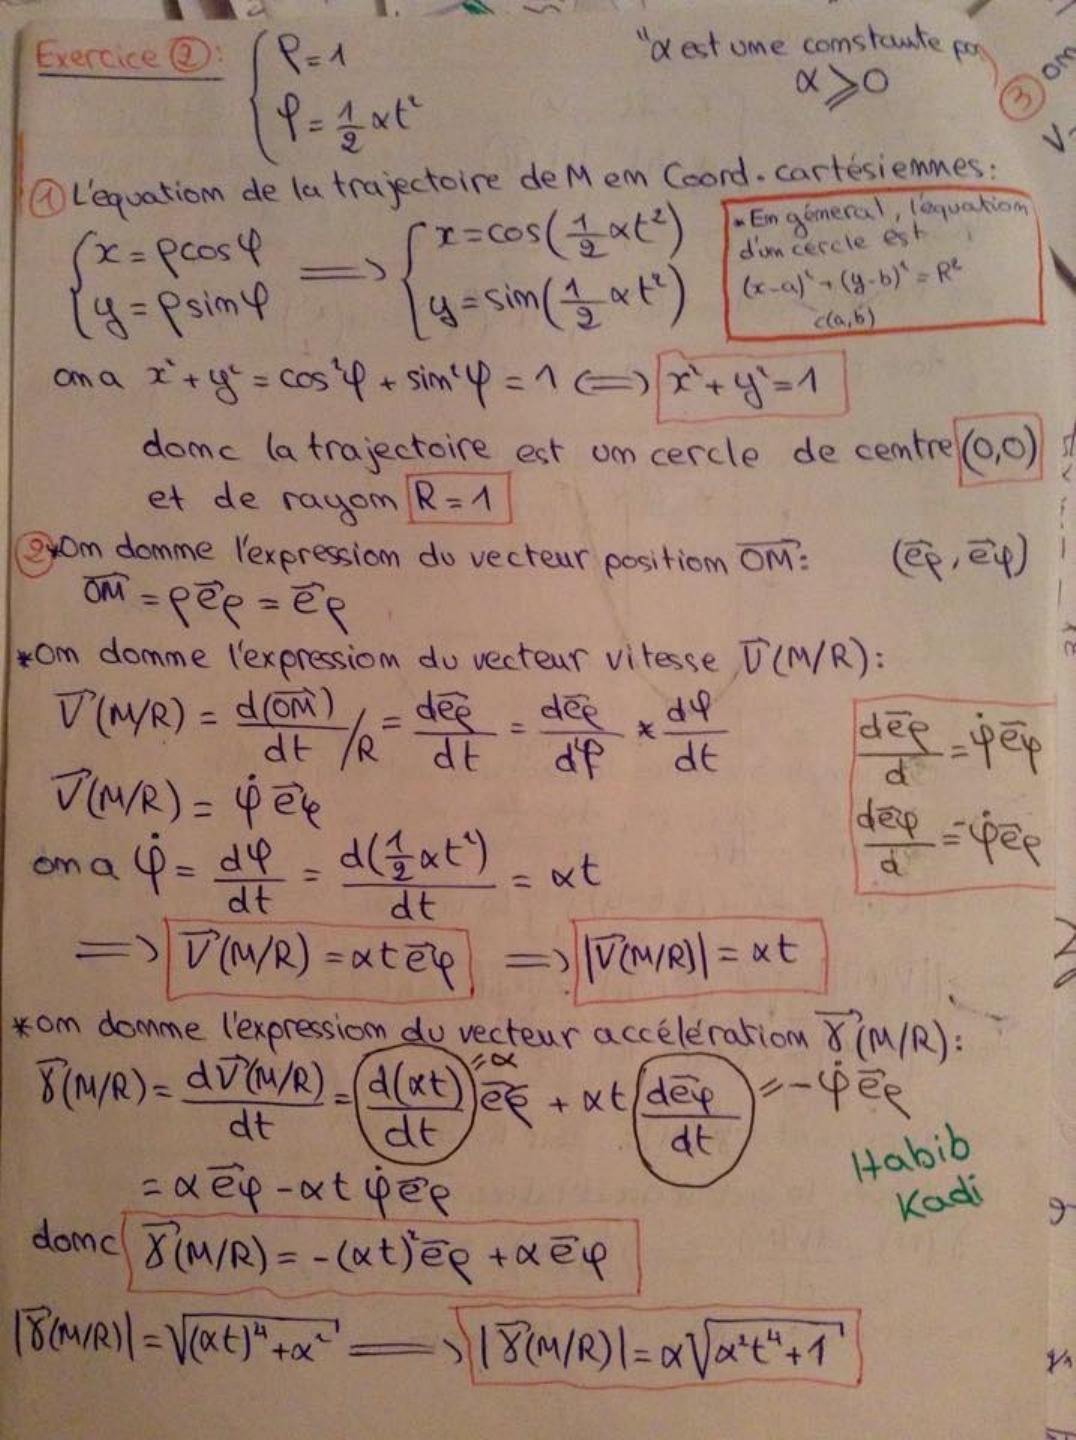 Exercice ②: { ρ = 1
φ = 1/2 αt²
"α est une constante po
α ⩾ 0
③ om
① L'équation de la trajectoire de M en Coord. cartésiennes:
{ x = ρcosφ ⟹ { x = cos(1/2 αt²)
{ y = ρsinφ { y = sin(1/2 αt²)
* En général, l'équation
d'un cercle est
(x-a)² + (y-b)² = R²
c(a,b)
on a x² + y² = cos²φ + sin²φ = 1 ⟺ x² + y² = 1
donc la trajectoire est un cercle de centre (0,0)
et de rayon R = 1
② *On donne l'expression du vecteur position OM⃗: (e⃗ρ, e⃗φ)
OM⃗ = ρe⃗ρ = e⃗ρ
*On donne l'expression du vecteur vitesse V⃗(M/R):
V⃗(M/R) = d(OM⃗)/dt /R = de⃗ρ/dt = de⃗ρ/dφ * dφ/dt
de⃗ρ/d = φ̇e⃗φ
V⃗(M/R) = φ̇ e⃗φ
de⃗φ/d = -φ̇e⃗ρ
on a φ̇ = dφ/dt = d(1/2 αt²)/dt = αt
⟹ V⃗(M/R) = αt e⃗φ ⟹ |V⃗(M/R)| = αt
*on donne l'expression du vecteur accélération γ⃗(M/R):
γ⃗(M/R) = dV⃗(M/R)/dt = d(αt)/dt = α e⃗φ + αt de⃗φ/dt = -φ̇ e⃗ρ
= α e⃗φ - αt φ̇ e⃗ρ
Habib
Kadi
donc γ⃗(M/R) = -(αt)² e⃗ρ + α e⃗φ
|γ⃗(M/R)| = √((αt)⁴ + α²) ⟹ |γ⃗(M/R)| = α√(α²t⁴ + 1)